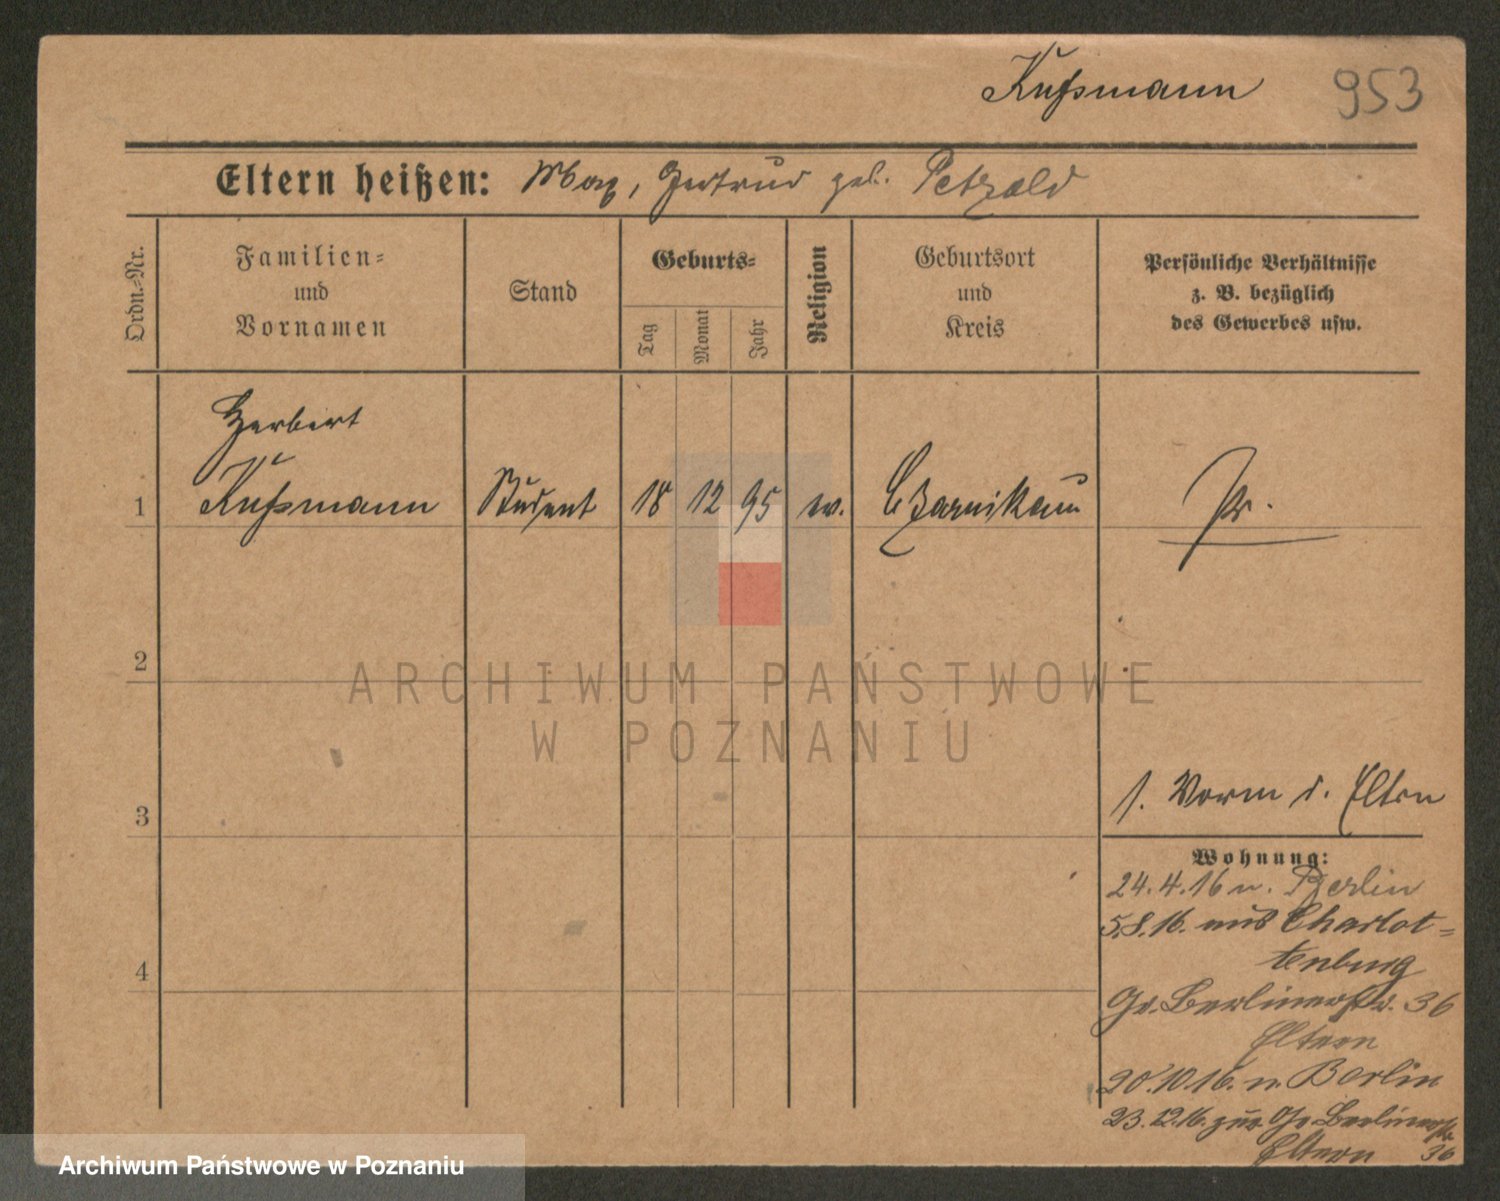 Kußmann 953
Eltern heißen: Max, Gertrud geb. Petzold
Ordn.-Nr.
Familien-
und
Vornamen
Stand
Geburts-
Tag
Monat
Jahr
Religion
Geburtsort
und
Kreis
Persönliche Verhältnisse
z. B. bezüglich
des Gewerbes usw.
Herbert
1 Kußmann Student 18 12 95 ev. Czarnikau Pr.
2
ARCHIWUM PAŃSTWOWE
W POZNANIU
3
s. Vorm d. Eltern
Wohnung:
24.4.16 n. Berlin
5.8.16. aus Charlot-
tenburg
4
Gr. Berlinerstr. 36
Eltern
20.10.16. n. Berlin
23.12.16. zur. Gr Berlinerstr.
Eltern 36
Archiwum Państwowe w Poznaniu